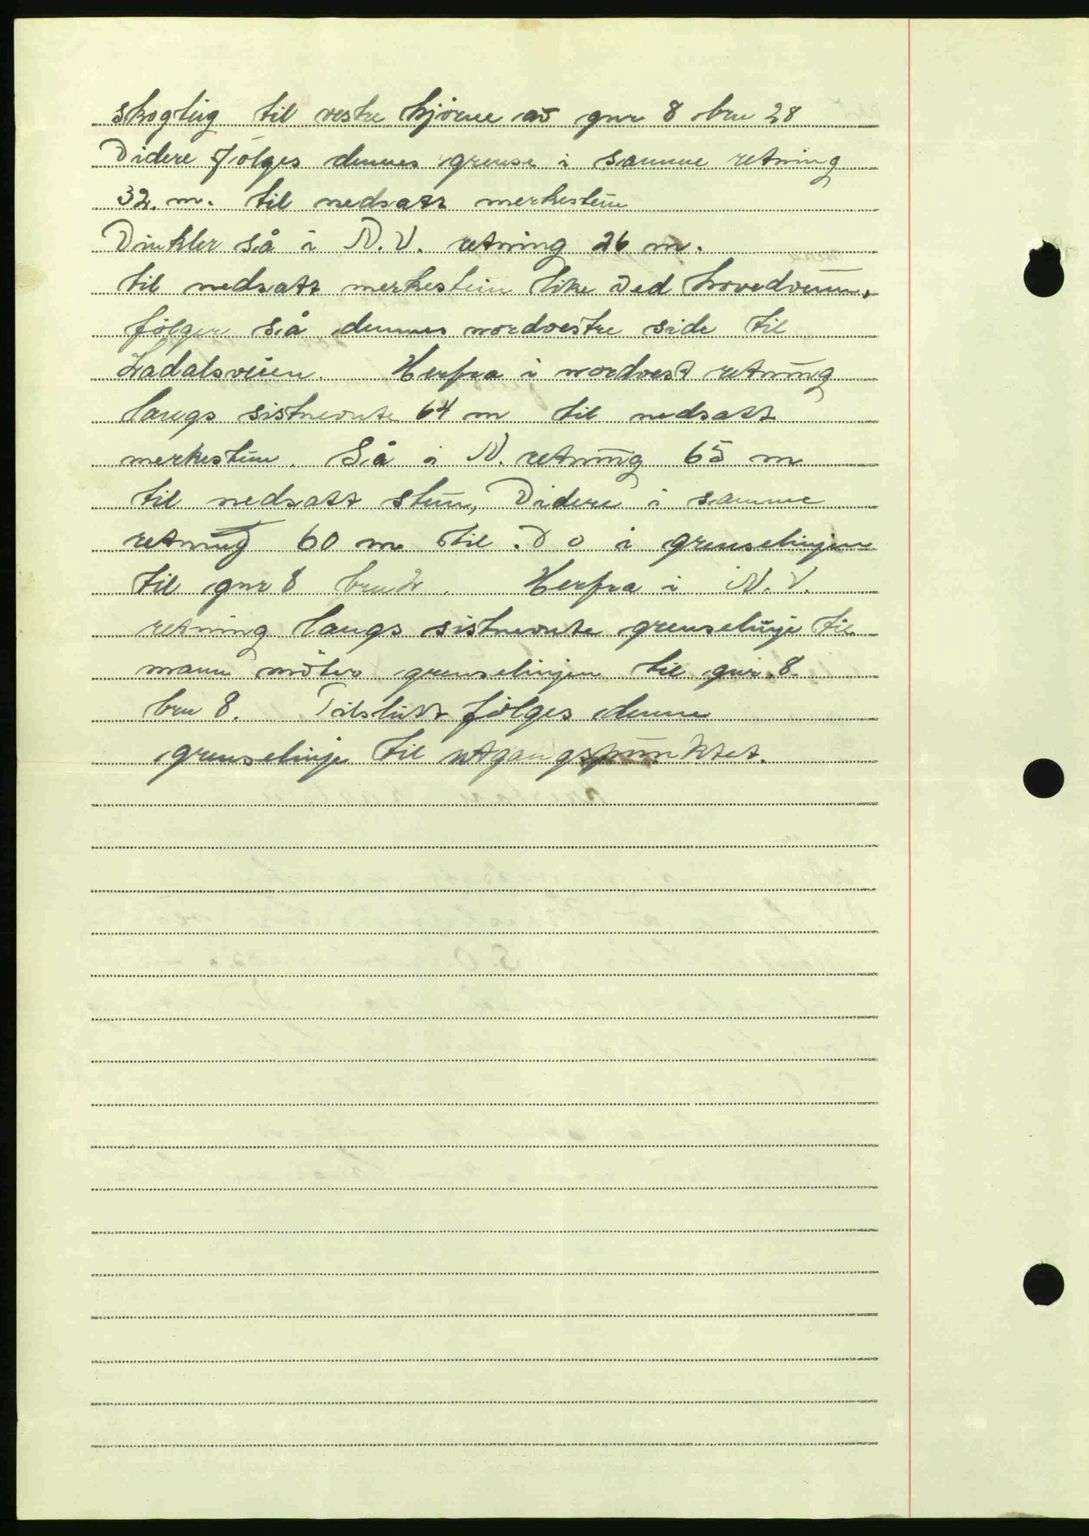 skogteig til vestre hjørne av gnr 8 bnr 28
Videre følges dennes grense i samme retning
32. m. til nedsatt merkestein
Vinkler så i N.V. retning 26 m.
til nedsatt merkestein like ved hovedveien,
følger så dennes nordvestre side til
Herfra i nordvest retning
langs sistnevnte 64 m til nedsatt
merkestein. Så i N. retning 65 m
til nedsatt stein, Videre i samme
retning 60 m til Do i grenselinjen
til gnr 8 Herfra i N.V.
retning langs sistnevnte grenselinje til
mann møter grenselinjen til gnr. 8.
bnr 8. Tilslutt følges denne
grenselinje til utgangspunktet.